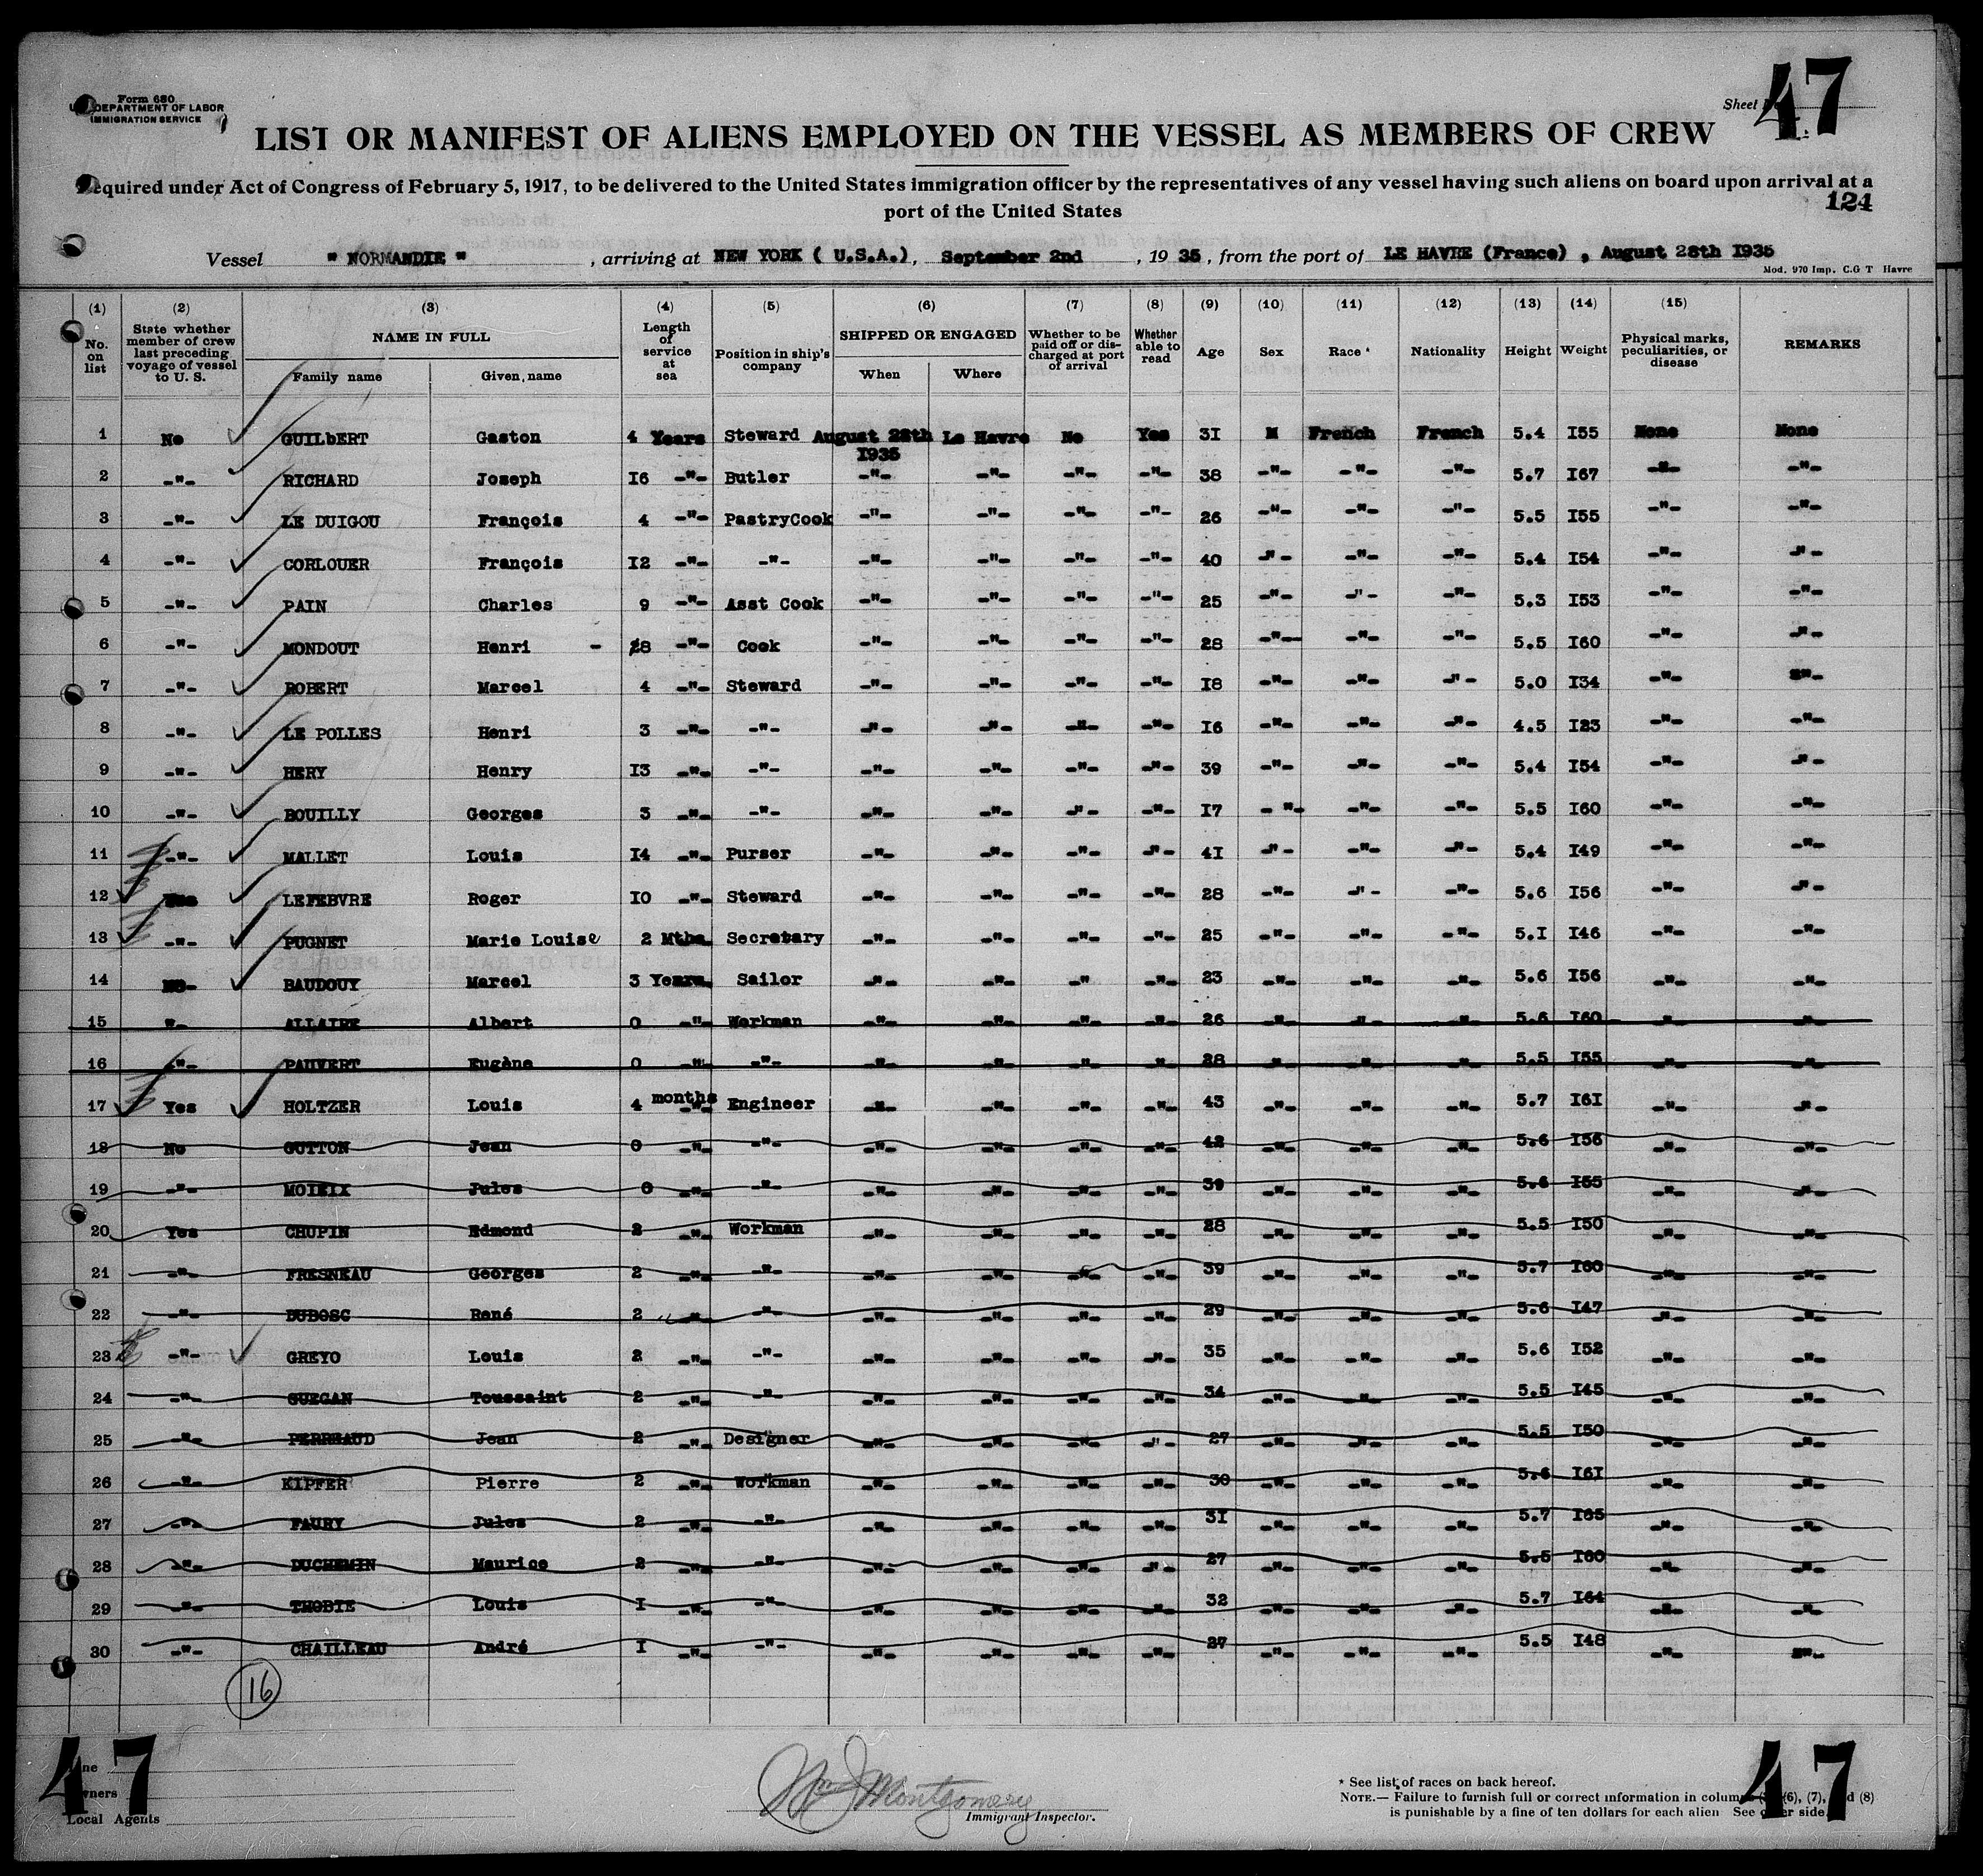 Form 680
U.S. DEPARTMENT OF LABOR
IMMIGRATION SERVICE
Sheet No. 47
LIST OR MANIFEST OF ALIENS EMPLOYED ON THE VESSEL AS MEMBERS OF CREW
Required under Act of Congress of February 5, 1917, to be delivered to the United States immigration officer by the representatives of any vessel having such aliens on board upon arrival at a
port of the United States
124
Vessel " NORMANDIE " , arriving at NEW YORK ( U.S.A.), September 2nd , 19 35 , from the port of LE HAVRE (France) , August 28th I935
Mod. 970 Imp. C.G T Havre
(1) (2) (3) (4) (5) (6) (7) (8) (9) (10) (11) (12) (13) (14) (15)
No. on list State whether member of crew last preceding voyage of vessel to U. S. NAME IN FULL Family name Given name Length of service at sea Position in ship's company SHIPPED OR ENGAGED When Where Whether to be paid off or discharged at port of arrival Whether able to read Age Sex Race * Nationality Height Weight Physical marks, peculiarities, or disease REMARKS
1 No GUILbERT Gaston 4 Years Steward August 28th I935 Le Havre No Yes 3I M French French 5.4 I55 None None
2 -"- RICHARD Joseph I6 -"- Butler -"- -"- -"- -"- 38 -"- -"- -"- 5.7 I67 -"- -"-
3 -"- LE DUIGOU François 4 -"- PastryCook -"- -"- -"- -"- 26 -"- -"- -"- 5.5 I55 -"- -"-
4 -"- CORLOUER François I2 -"- -"- -"- -"- -"- -"- 40 -"- -"- -"- 5.4 I54 -"- -"-
5 -"- PAIN Charles 9 -"- Asst Cook -"- -"- -"- -"- 25 -"- -"- -"- 5.3 I53 -"- -"-
6 -"- MONDOUT Henri - 28 -"- Cook -"- -"- -"- -"- 28 -"- -"- -"- 5.5 I60 -"- -"-
7 -"- ROBERT Marcel 4 -"- Steward -"- -"- -"- -"- I8 -"- -"- -"- 5.0 I34 -"- -"-
8 -"- LE POLLES Henri 3 -"- -"- -"- -"- -"- -"- I6 -"- -"- -"- 4.5 I23 -"- -"-
9 -"- HERY Henry I3 -"- -"- -"- -"- -"- -"- 39 -"- -"- -"- 5.4 I54 -"- -"-
10 -"- BOUILLY Georges 3 -"- -"- -"- -"- -"- -"- I7 -"- -"- -"- 5.5 I60 -"- -"-
11 -"- MALLET Louis I4 -"- Purser -"- -"- -"- -"- 4I -"- -"- -"- 5.4 I49 -"- -"-
12 Yes LEFEBVRE Roger I0 -"- Steward -"- -"- -"- -"- 28 -"- -"- -"- 5.6 I56 -"- -"-
13 -"- PUGNET Marie Louise 2 Mths Secretary -"- -"- -"- -"- 25 -"- -"- -"- 5.I I46 -"- -"-
14 No- BAUDOUY Marcel 3 Years Sailor -"- -"- -"- -"- 23 -"- -"- -"- 5.6 I56 -"- -"-
15 "- ALLAIRE Albert 0 -"- Workman -"- -"- -"- -"- 26 -"- -"- -"- 5.6 I60 -"- -"-
16 -"- PAUVERT Eugène 0 -"- -"- -"- -"- -"- -"- 28 -"- -"- -"- 5.5 I55 -"- -"-
17 Yes HOLTZER Louis 4 months -"- Engineer -"- -"- -"- -"- 43 -"- -"- -"- 5.7 I6I -"- -"-
18 No GUTTON Jean 0 -"- -"- -"- -"- -"- -"- 42 -"- -"- -"- 5.6 I56 -"- -"-
19 -"- MOIEIX Jules 0 -"- -"- -"- -"- -"- -"- 39 -"- -"- -"- 5.6 I55 -"- -"-
20 Yes CHUPIN Edmond 2 -"- Workman -"- -"- -"- -"- 28 -"- -"- -"- 5.5 I50 -"- -"-
21 -"- FRESNEAU Georges 2 -"- -"- -"- -"- -"- -"- 39 -"- -"- -"- 5.7 I60 -"- -"-
22 -"- DUBOSC René 2 -"- -"- -"- -"- -"- -"- 29 -"- -"- -"- 5.6 I47 -"- -"-
23 -"- GREYO Louis 2 -"- -"- -"- -"- -"- -"- 35 -"- -"- -"- 5.6 I52 -"- -"-
24 -"- GUEGAN Toussaint 2 -"- -"- -"- -"- -"- -"- 34 -"- -"- -"- 5.5 I45 -"- -"-
25 -"- PERREAUD Jean 2 -"- Designer -"- -"- -"- -"- 27 -"- -"- -"- 5.5 I50 -"- -"-
26 -"- KIPFER Pierre 2 -"- Workman -"- -"- -"- -"- 30 -"- -"- -"- 5.6 I6I -"- -"-
27 -"- FAURY Jules 2 -"- -"- -"- -"- -"- -"- 3I -"- -"- -"- 5.7 I65 -"- -"-
28 -"- DUCHEMIN Maurice 2 -"- -"- -"- -"- -"- -"- 27 -"- -"- -"- 5.5 I60 -"- -"-
29 -"- THOBIE Louis I -"- -"- -"- -"- -"- -"- 32 -"- -"- -"- 5.7 I64 -"- -"-
30 -"- CHAILLEAU André I -"- -"- -"- -"- -"- -"- 27 -"- -"- -"- 5.5 I48 -"- -"-
16
47
Line
Owners
Local Agents
Wm J Montgomery
Immigrant Inspector.
* See list of races on back hereof.
NOTE.— Failure to furnish full or correct information in columns (6), (7), and (8)
is punishable by a fine of ten dollars for each alien See other side.
47